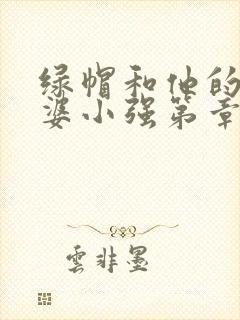 绿帽和他的
婆小强第章
雲非墨